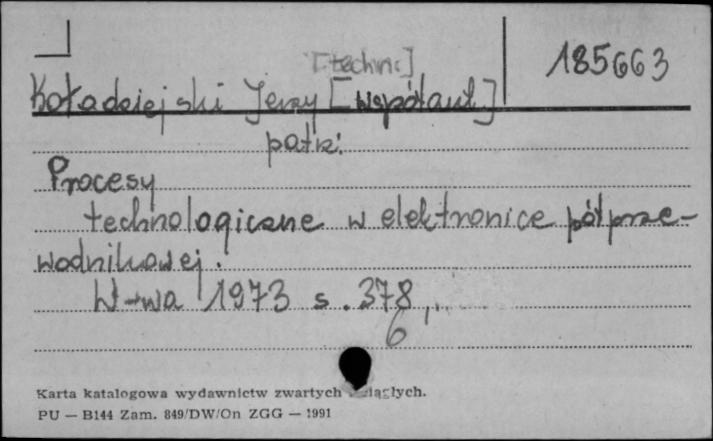 [techn.]
185663
Kołodziejski Jerzy [współaut.]
patrz:
Procesy
technologiczne w elektronice półprze-
wodnikowej.
W-wa 1973 s. 378,
6
Karta katalogowa wydawnictw zwartych i ciągłych.
PU — B144 Zam. 849/DW/On ZGG — 1991